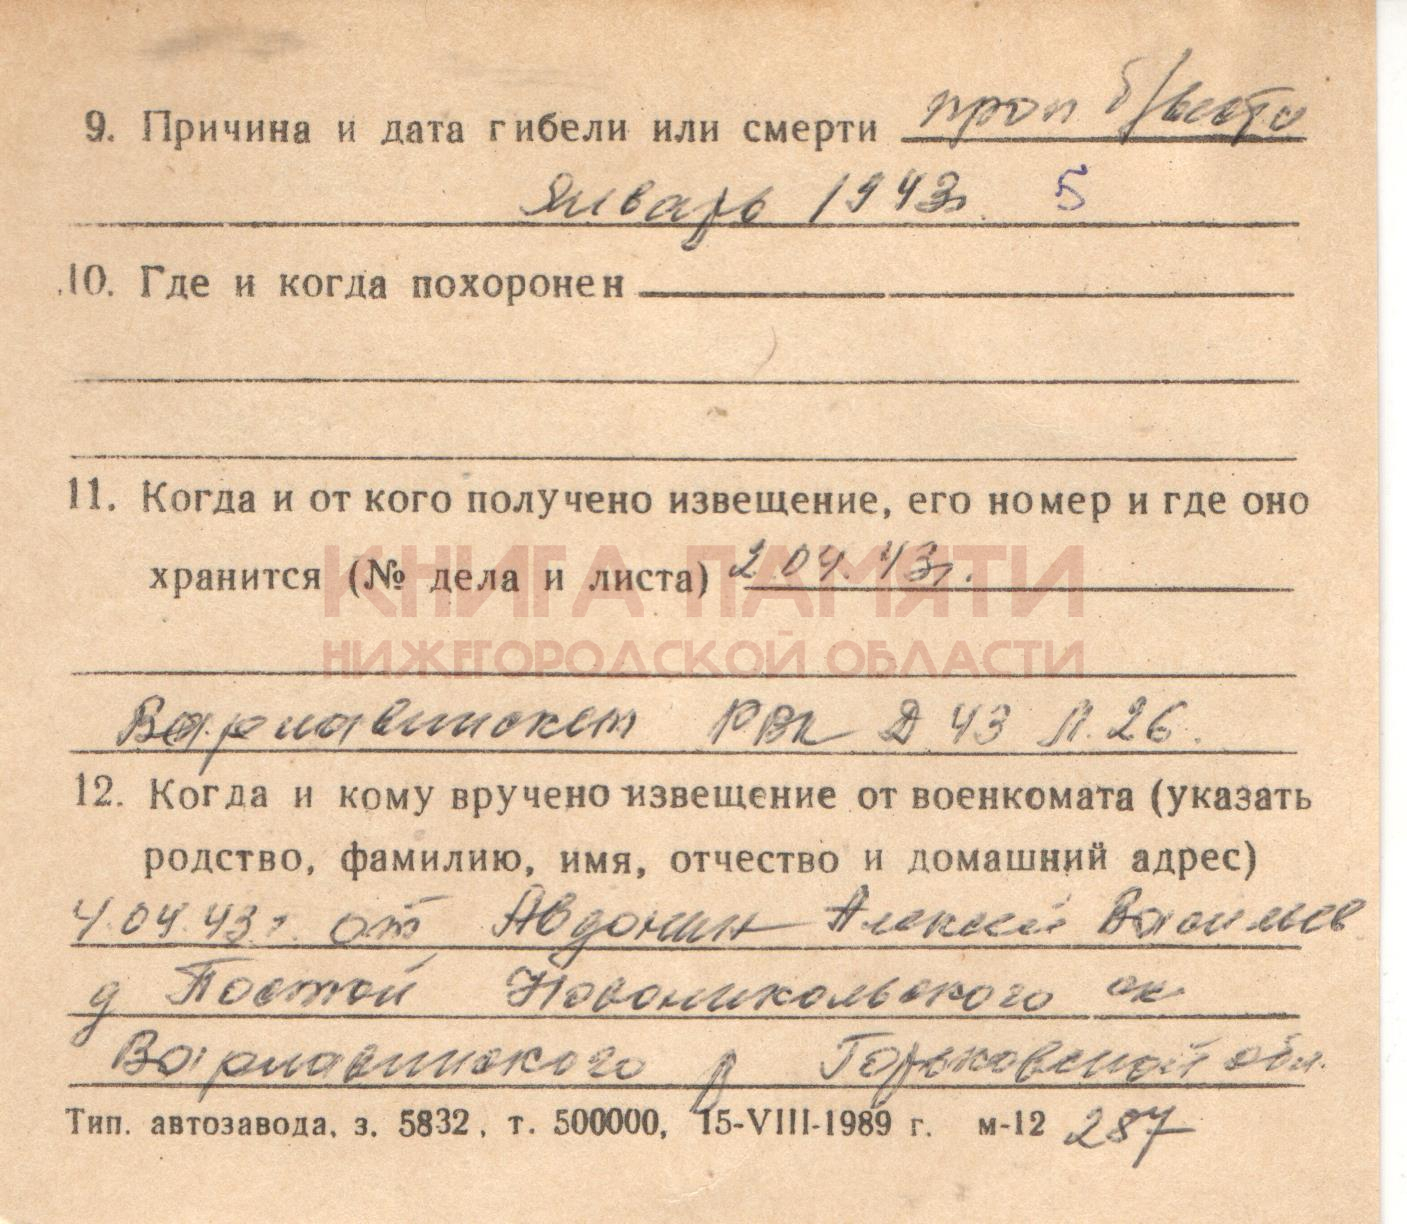 9. Причина и дата гибели или смерти проп б/вести
январь 1943г. 5
10. Где и когда похоронен
11. Когда и от кого получено извещение, его номер и где оно
хранится (№ дела и листа) 2.04.43г.
КНИГА ПАМЯТИ
НИЖЕГОРОДСКОЙ ОБЛАСТИ
Варнавинским РВК Д 43 Л. 26.
12. Когда и кому вручено извещение от военкомата (указать
родство, фамилию, имя, отчество и домашний адрес)
4.04.43г. от Авдонин Алексей Васильев
д Постой Новоникольского с/с
Варнавинского р Горьковской обл.
Тип. автозавода, з. 5832, т. 500000, 15-VIII-1989 г. м-12 287